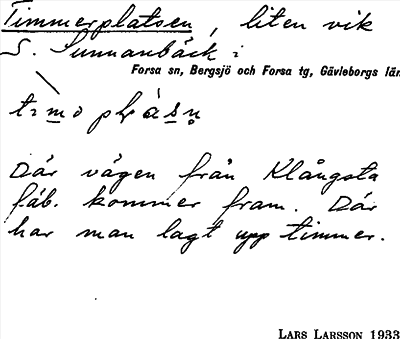 Timmerplatsen, liten vik
S. Sunnanbäck i
Forsa sn, Bergsjö och Forsa tg, Gävleborgs län
Där vägen från Klångsta
fäb. kommer fram. Där
har man lagt upp timmer.
LARS LARSSON 1933